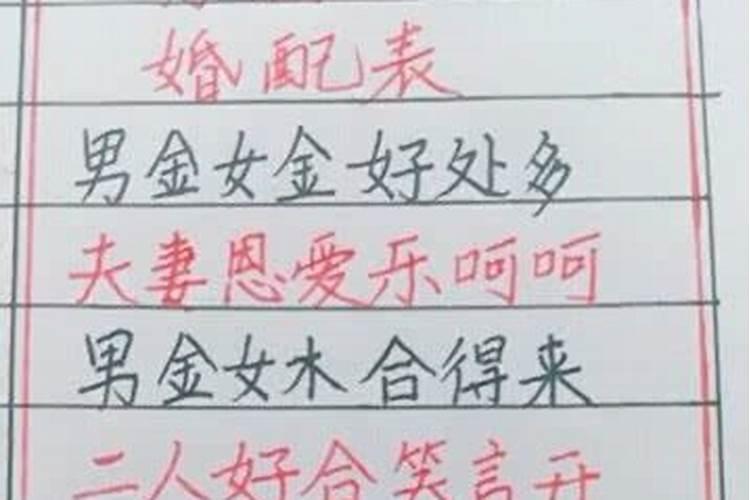 婚配表
男金女金好处多
夫妻恩爱乐呵呵
男金女木合得来
二人好合笑言开